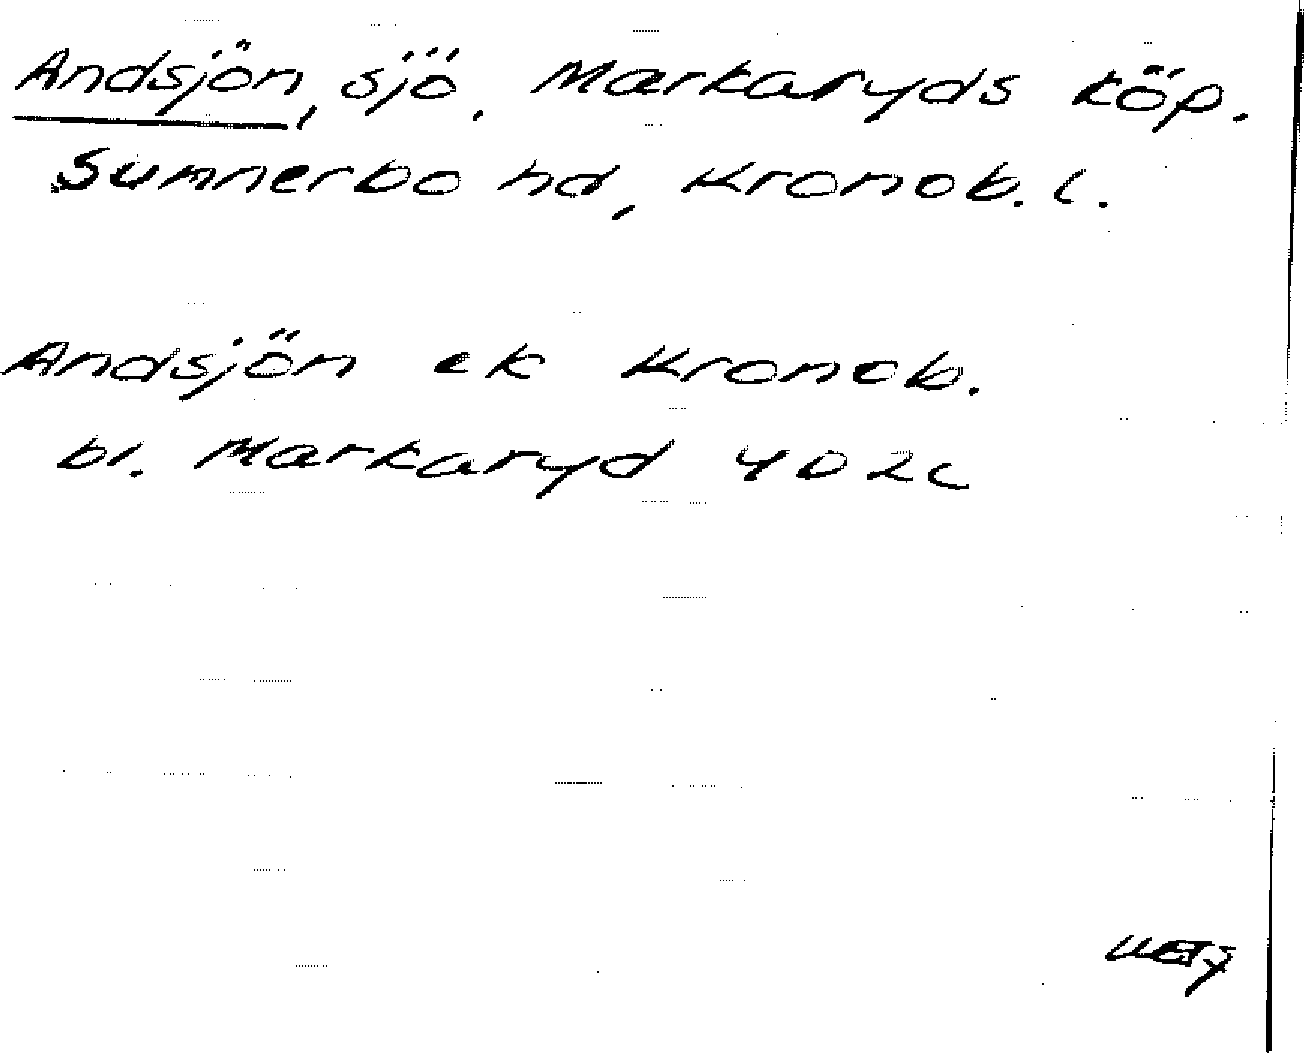 Andsjön, sjö, Markaryds köp.
Sunnerbo hd, Kronob. l.
Andsjön ek Kronob.
bl. Markaryd 4D2c